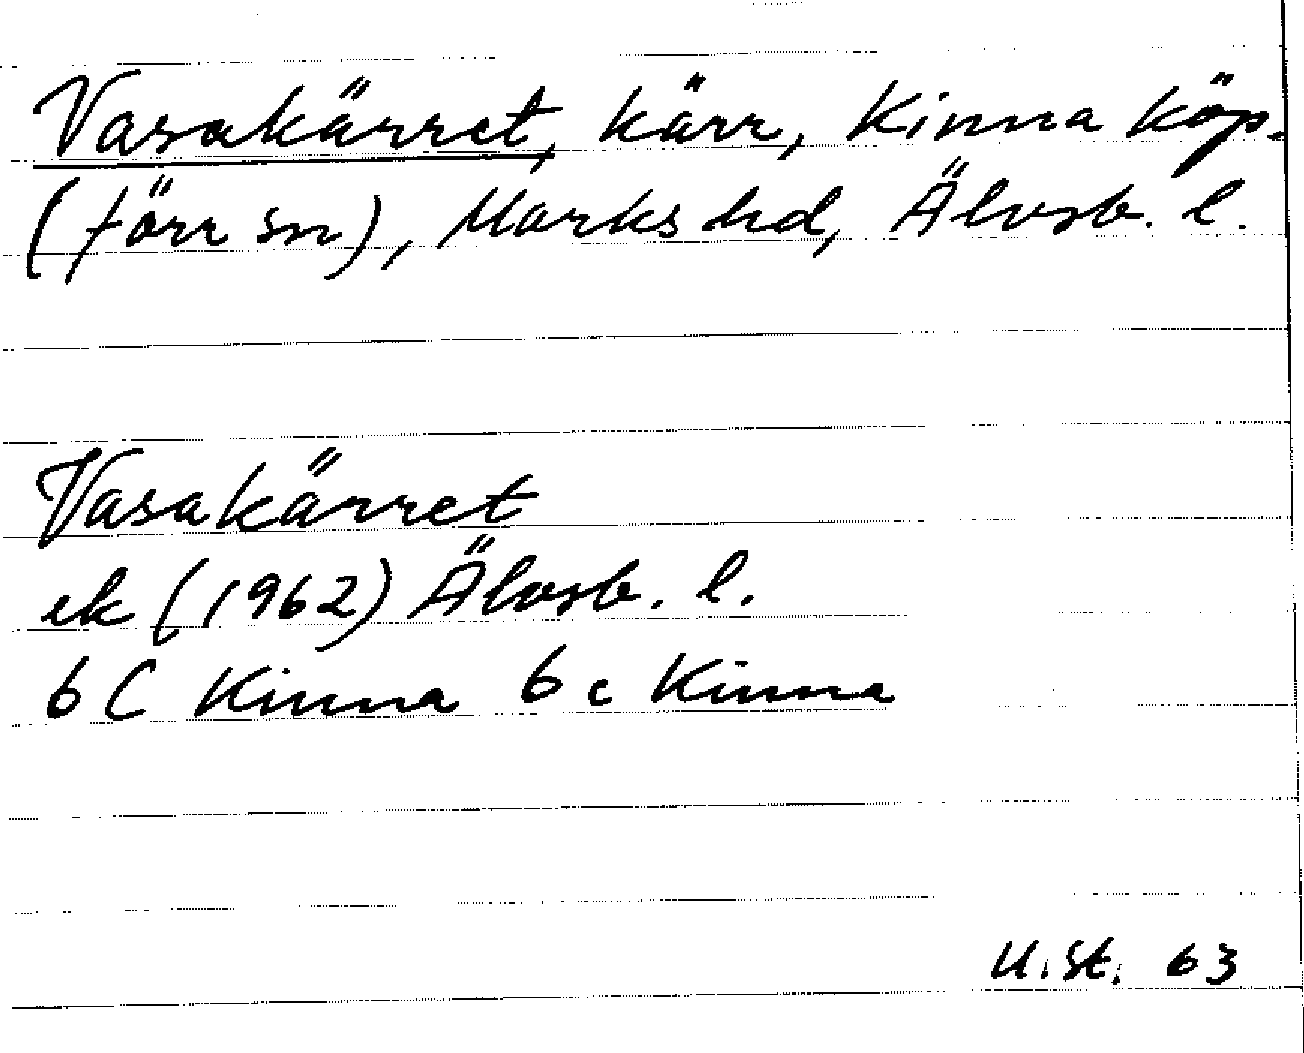 Vasakärret, kärr, Kinna köp.
(förr sn), Marks hd, Älvsb. l.
Vasakärret
ek (1962) Älvsb. l.
6 C Kinna 6 c Kinna
U. St. 63